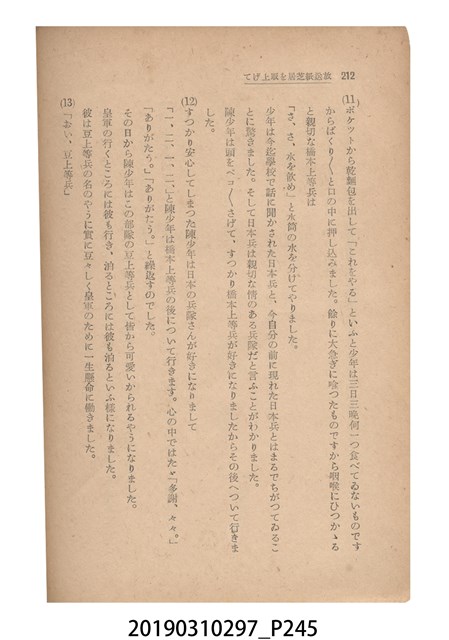 212 放送紙芝居を取上げて
(11) ポケットから乾麵包を出して「これをやる」といふと少年は三日三晩何一つ食べてゐないものです
からぱくり〱と口の中に押し込みました。餘りに大急ぎに喰つたものですから咽喉にひつかゝる
と親切な橋本上等兵は
「さ、さ、水を飮め」と水筒の水を分けてやりました。
少年は今迄學校で話に聞かされた日本兵と、今自分の前に現れた日本兵とはまるでちがつてゐるこ
とに驚きました。そして日本兵は親切な情のある兵隊だと言ふことがわかりました。
陳少年は頭をペコ〱さげて、すつかり橋本上等兵が好きになりましたからその後へついて行きま
した。
(12) すつかり安心してしまつた陳少年は日本の兵隊さんが好きになりまして
「一、二、一、二、」と陳少年は橋本上等兵の後について行きます。心の中ではたゞ「多謝、々々。」
「ありがたう。」「ありがたう。」と繰返すのでした。
その日から陳少年はこの部隊の豆上等兵として皆から可愛いがられるやうになりました。
皇軍の行くところには彼も行き、泊るところには彼も泊るといふ樣になりました。
彼は豆上等兵の名のやうに實に豆々しく皇軍のために一生懸命に働きました。
(13) 「おい、豆上等兵」
20190310297_P245